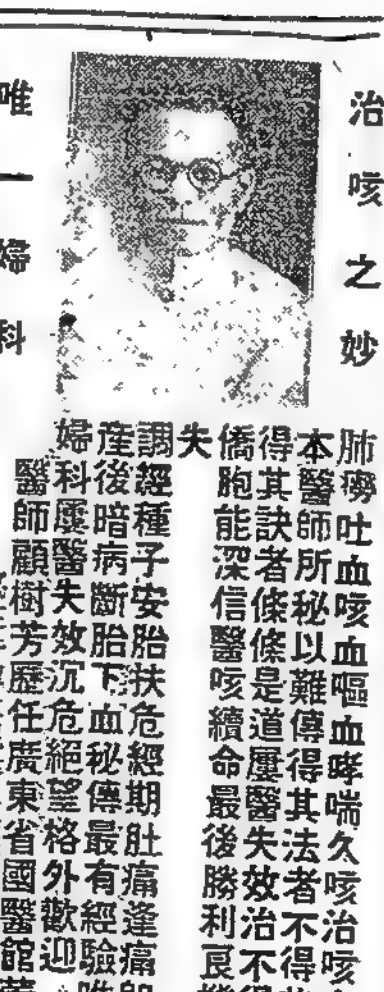 治咳之妙
肺癆吐血咳血嘔血哮喘久咳治咳
本醫師所秘以難傳得其法者不得
得其訣者條條是道屢醫失效治不
僑胞能深信醫咳續命最後勝利良
失
調經種子安胎扶危經期肚痛逢痛
產後暗病斷胎下血秘傳最有經驗
婦科屢醫失效沉危絕望格外歡迎
醫師顧樹芳歷任廣東省國醫館
唯一婦科